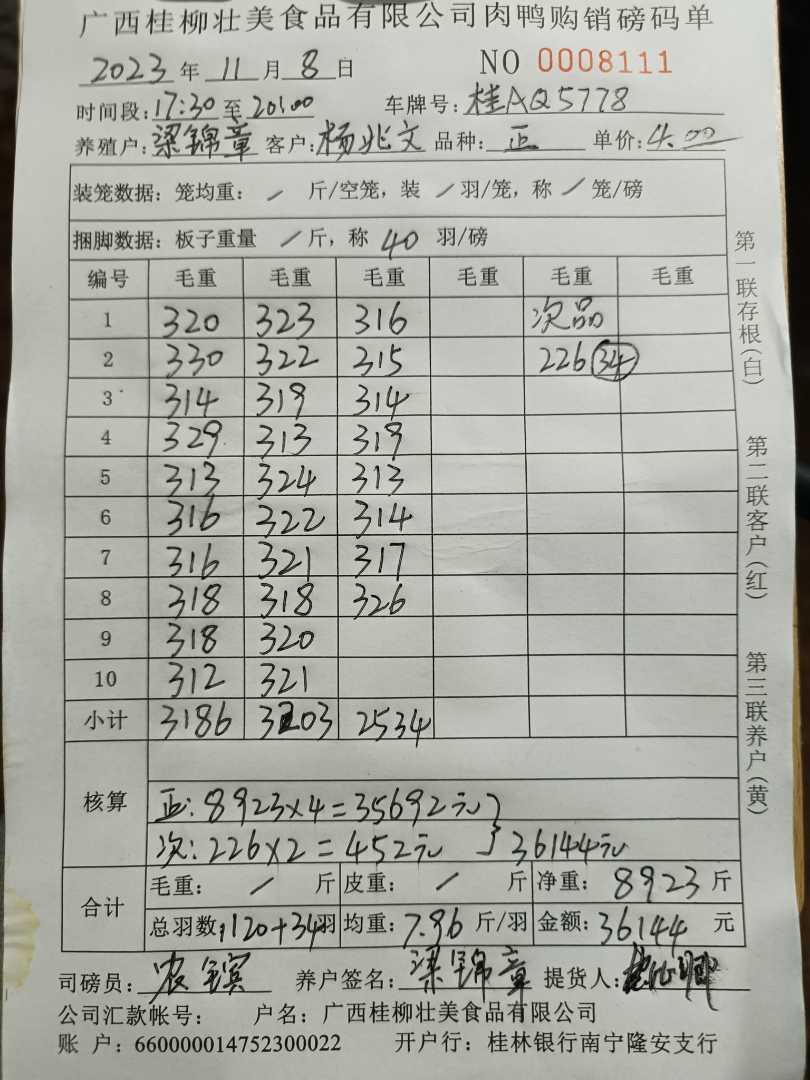 广西桂柳壮美食品有限公司肉鸭购销磅码单
2023年11月8日 NO 0008111
时间段:17:30至20:00 车牌号:桂AQ5778
养殖户:梁锦章 客户:杨兆文 品种:正 单价:4.00
装笼数据:笼均重:/斤/空笼,装/羽/笼,称/笼/磅
捆脚数据:板子重量/斤,称40羽/磅
编号 毛重 毛重 毛重 毛重 毛重 毛重
1 320 323 316 次品
2 330 322 315 226 34
3 314 319 314
4 329 313 319
5 313 324 313
6 316 322 314
7 316 321 317
8 318 318 326
9 318 320
10 312 321
小计 3186 3203 2534
核算
正:8923×4=35692元
次:226×2=452元 } 36144元
合计
毛重:/斤 皮重:/斤 净重:8923斤
总羽数:1120+34羽 均重:7.96斤/羽 金额:36144元
司磅员:农 养户签名:梁锦章 提货人:
公司汇款帐号: 户名:广西桂柳壮美食品有限公司
账 户:660000014752300022 开户行:桂林银行南宁隆安支行
第一联存根(白)
第二联客户(红)
第三联养户(黄)